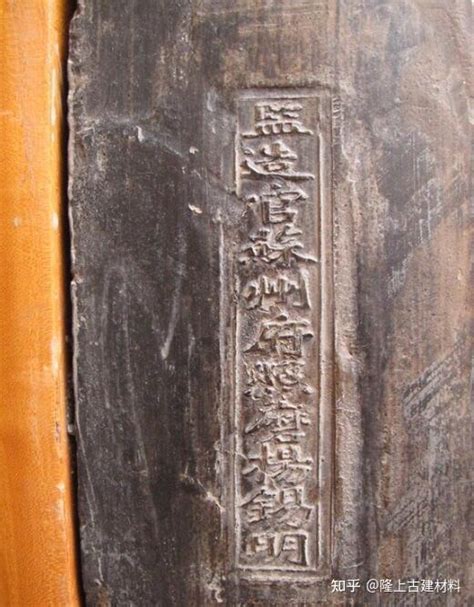 監造官蘇州府照磨楊錫明
知乎 @隆上古建材料